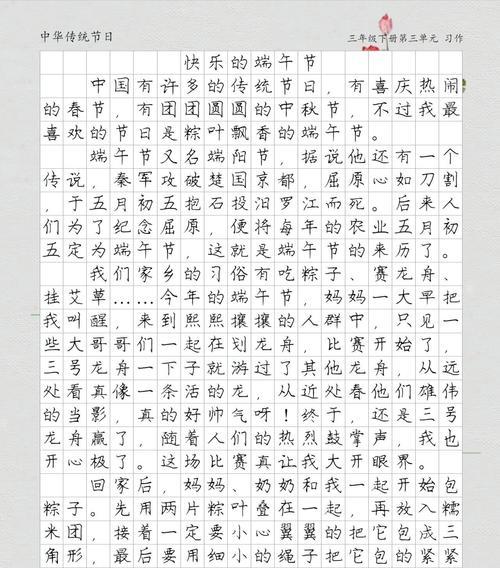 中华传统节日
三年级下册第三单元 习作
快乐的端午节
中国有许多的传统节日，有喜庆热闹
的春节，有团团圆圆的中秋节，不过我最
喜欢的节日是粽叶飘香的端午节。
端午节又名端阳节，据说他还有一个
传说，秦军攻破楚国京都，屈原心如刀割
，于五月初五抱石投汨罗江而死。后来人
们为了纪念屈原，便将每年的农业五月初
五定为端午节，这就是端午节的来历了。
我们家乡的习俗有吃粽子、赛龙舟、
挂艾草……今年的端午节，妈妈一大早把
我叫醒，来到熙熙攘攘的人群中，只见一
些大哥哥们一起在划龙舟，比赛开始了，
三号龙舟一下子就游过了其他龙舟，从远
处看真像一条活的龙，从近处看他们雄伟
的当影，真的好帅气呀！终于，还是三号
龙舟赢了，随着人们的热烈鼓掌声，我也
开心极了。这场比赛真让我大开眼界。
回家后，妈妈、奶奶和我一起开始包
粽子。先用两片粽叶叠在一起，再放入糯
米团，接着一定要小心翼翼的把它包成三
角形，最后要用细小的绳子把它包的紧紧